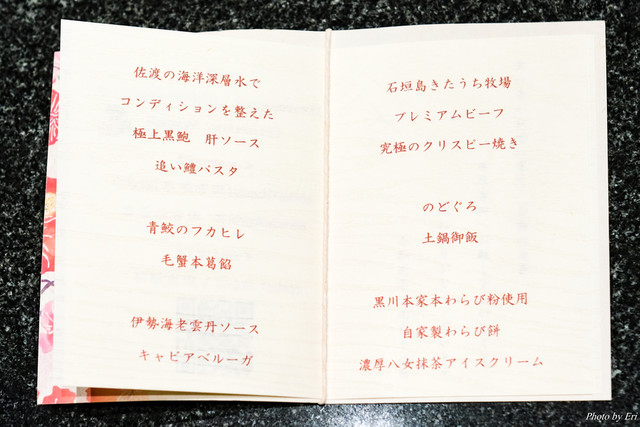 佐渡の海洋深層水で
コンディションを整えた
極上黒鮑　肝ソース
追い鱧パスタ
青鮫のフカヒレ
毛蟹本葛餡
伊勢海老雲丹ソース
キャビアベルーガ
石垣島きたうち牧場
プレミアムビーフ
究極のクリスピー焼き
のどぐろ
土鍋御飯
黒川本家本わらび粉使用
自家製わらび餅
濃厚八女抹茶アイスクリーム
Photo by Eri